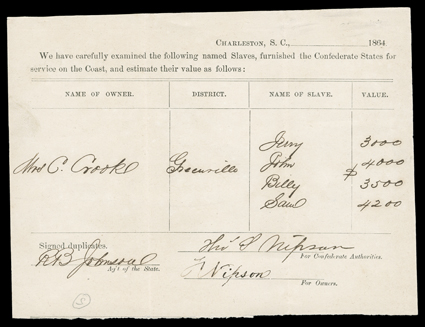 CHARLESTON, S. C., 1864
We have carefully examined the following named Slaves, furnished the Confederate States for
service on the Coast, and estimate their value as follows:
NAME OF OWNER. DISTRICT. NAME OF SLAVE. VALUE.
Jerry 3000
Mrs C. Crooke Greenville John $ 4000
Billy 3500
Sam 4200
Signed duplicates.
R B Johnson Thos S Nipson
Ag't of the State. For Confederate Authorities.
Nipson
For Owners.